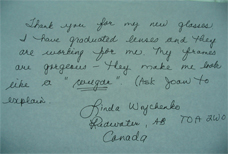 Thank you for my new glasses
I have graduated lenses and they
are working for me. My frames
are gorgeous & they make me look
like a "cougar" (Ask Joan to
explain
Linda Woychenko
Redwater, AB T0A 2W0
Canada